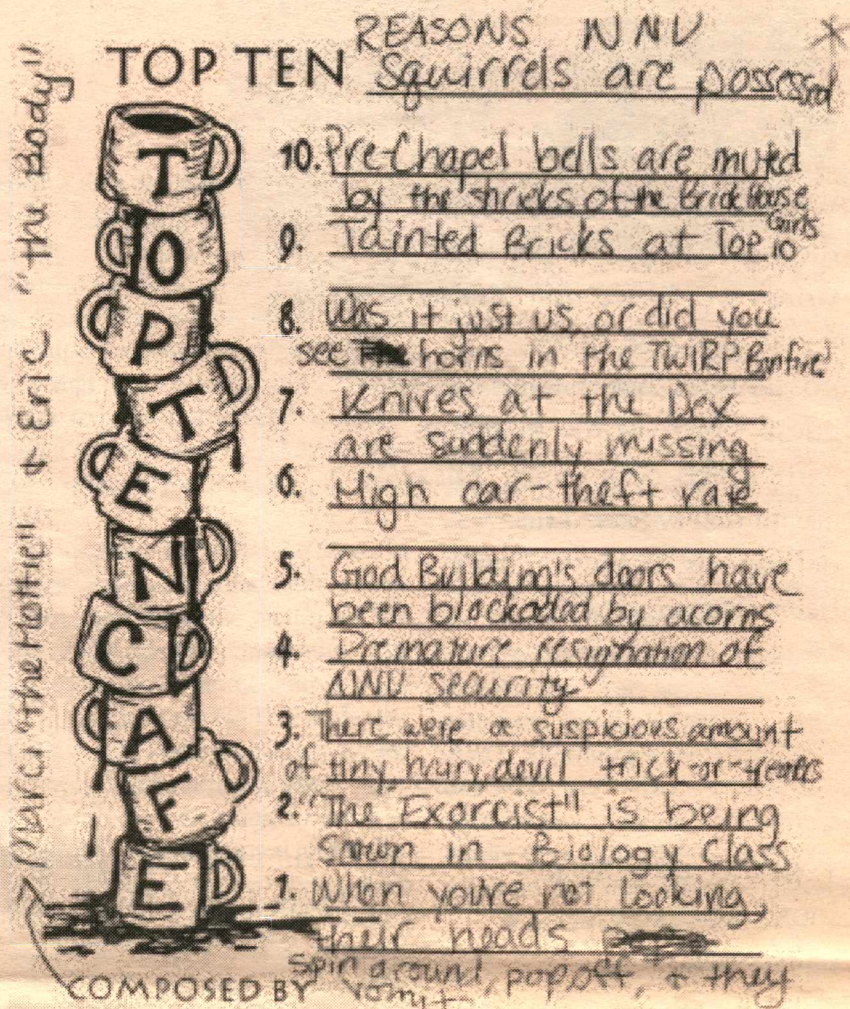 REASONS NNU
TOP TEN Squirrels are possessed
10. Pre-Chapel bells are muted
by the shrieks of the Brick House
Girls
9. Tainted Bricks at Top 10
8. Was it just us, or did you
see horns in the TWIRP Bonfire?
7. Knives at the Dex
are suddenly missing
6. High car-theft rate
5. God Building's doors have
been blockaded by acorns
4. Premature resignation of
NNU security
3. There were a suspicious amount
of tiny, hairy, devil trick-or-treaters
2. "The Exorcist" is being
shown in Biology Class
1. When you're not looking,
their heads
spin around, pop off, + they
vomit
COMPOSED BY
Marci "the Hottie" & Eric "the Body"
T
O
P
T
E
N
C
A
F
E